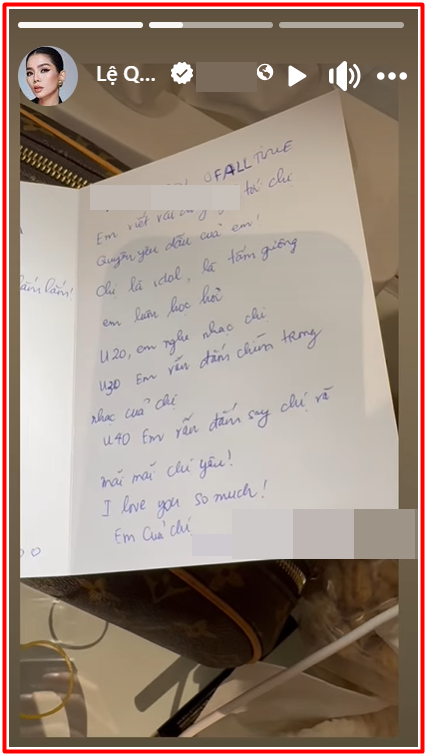 Lệ Q...
OFALLTIME
Em viết vài tới chị
Quyên yêu dấu của em!
Chị là idol, là tấm gương
em luôn học hỏi
U20, em nghe nhạc chị
U30 Em vẫn đắm chìm trong
nhạc của chị
U40 Em vẫn đắm say chị và
mãi mãi chị yêu!
I love you so much!
Em Của chị